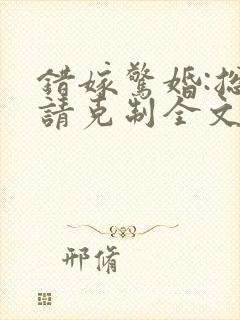 錯嫁驚婚:總
請克制全文
邢脩